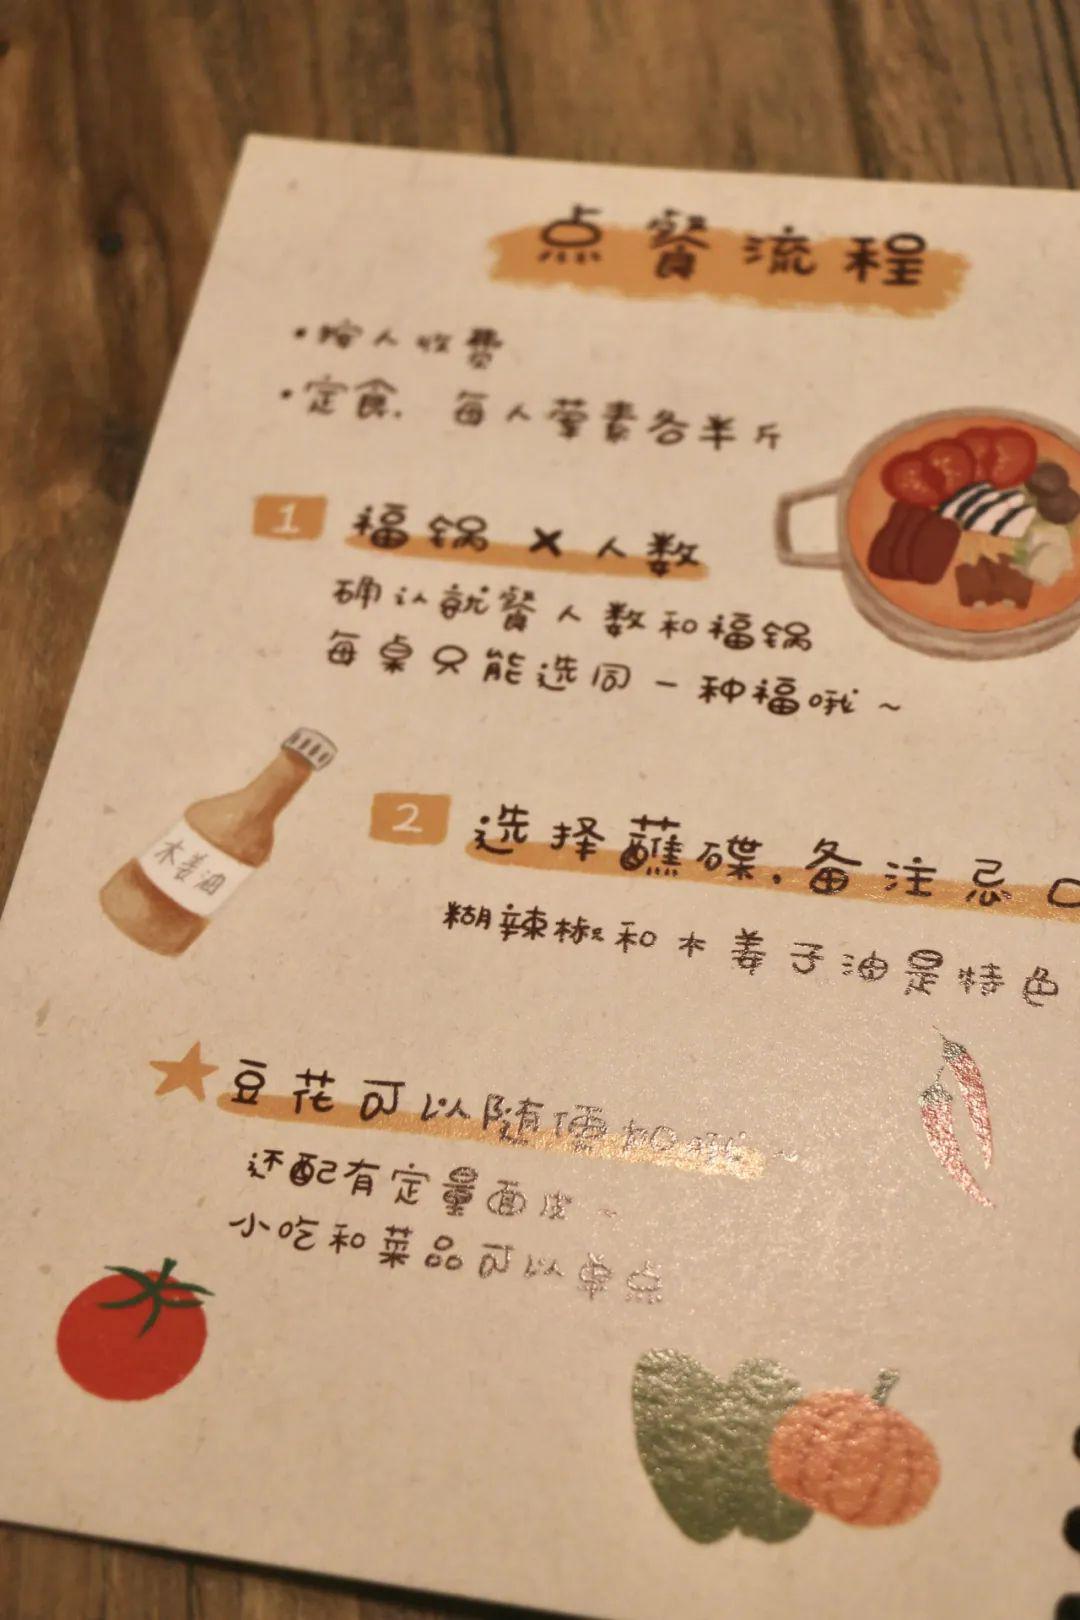 点餐流程
·按人收费
·定食. 每人荤素各半斤
1 福锅 × 人数
确认就餐人数和福锅
每桌只能选同一种福哦~
木姜油
2 选择蘸碟.备注忌口
糊辣椒和木姜子油是特色
豆花可以随便加哦~
还配有定量面皮~
小吃和菜品可以单点